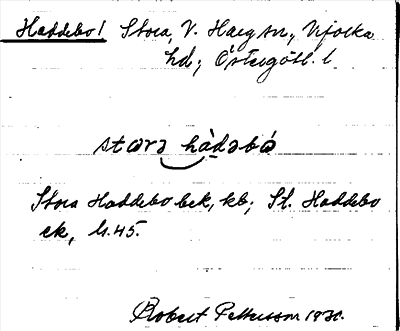 Haddebo! Stora, V. Harg sn, Vifolka
hd; Östergötl. l
stɷrə hàdəbó
Stora Haddebo bek, kb; St. Haddebo
ek, G.45.
Robert Pettersson 1930.